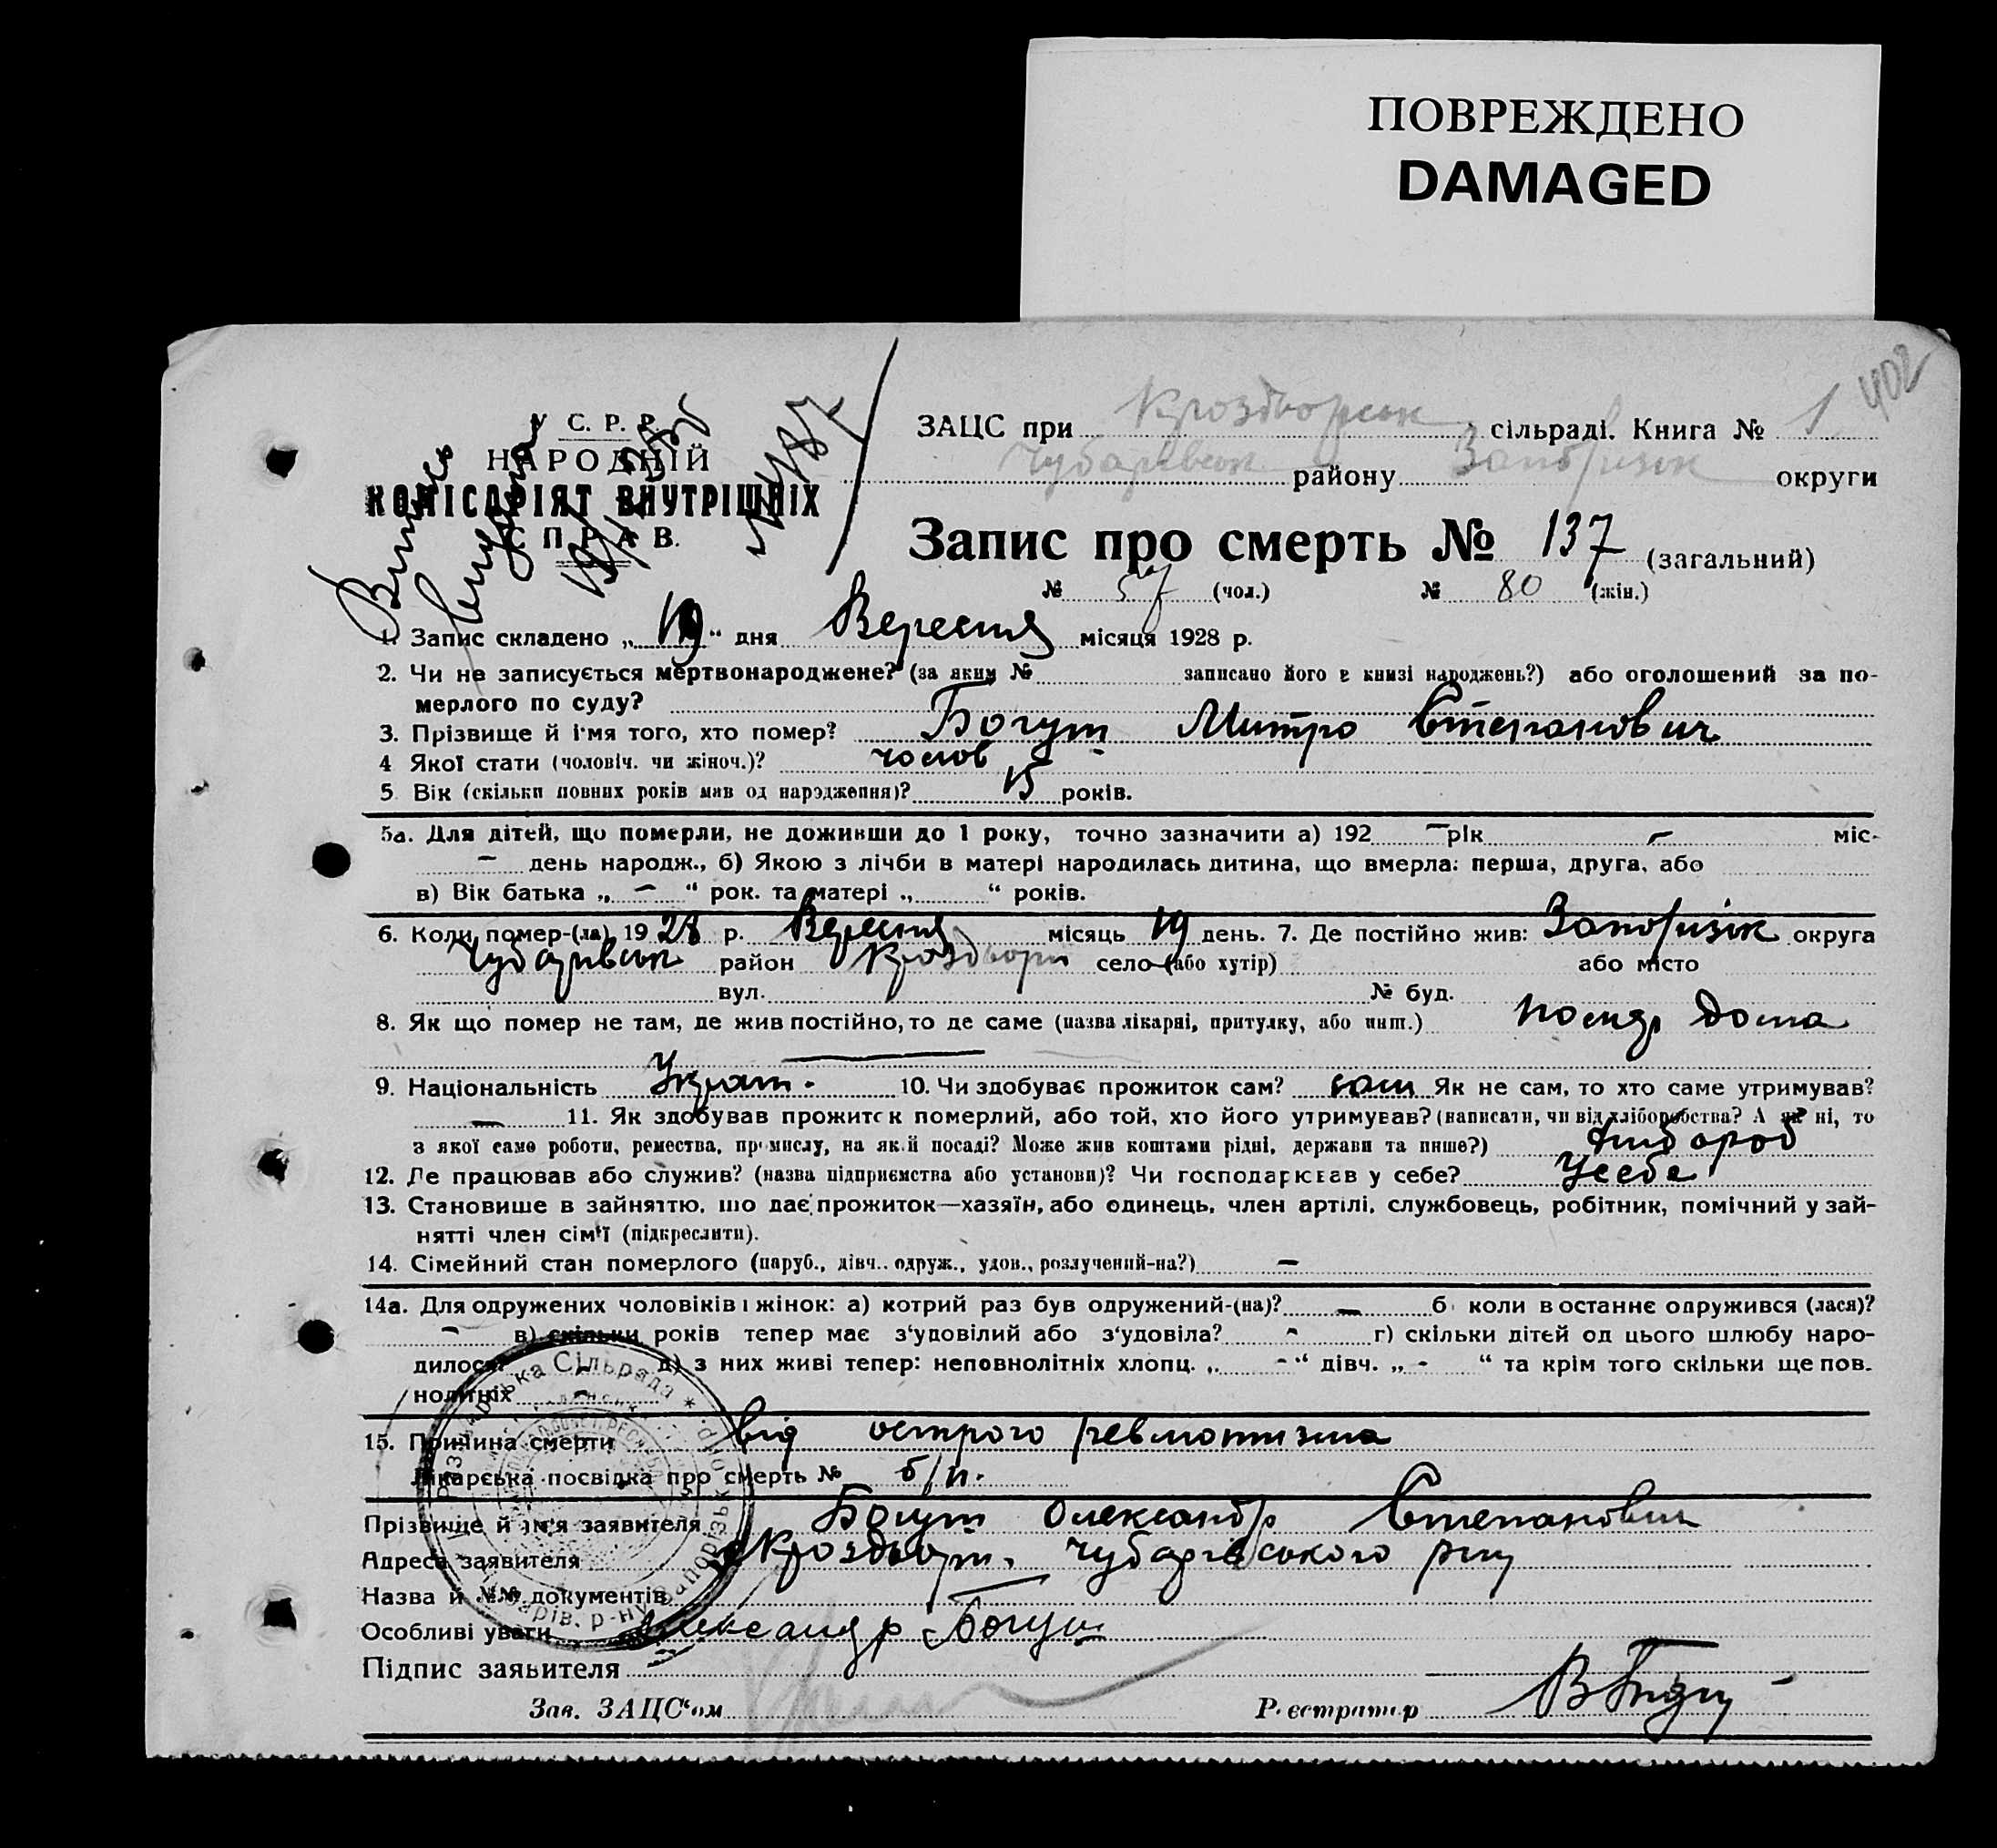 ПОВРЕЖДЕНО
DAMAGED
402
У С. Р. Р.
НАРОДНІЙ
КОМІСАРІЯТ ВНУТРІШНІХ
СПРАВ.
ЗАЦС при Кроздворськ сільраді. Книга № 1
Чубарівськ району Запорізьк округи
Запис про смерть № 137 (загальний)
№ 57 (чол.) № 80 (жін.)
1. Запис складено „19“ дня Вересня місяця 1928 р.
2. Чи не записується мертвонароджене? (за яким № записано його в книзі народжень?) або оголошений за по-
мерлого по суду?
3. Прізвище й ім'я того, хто помер? Богут Митро Степанович
4 Якої стати (чоловіч. чи жіноч.)? чолов
5. Вік (скільки повних років мав од народження)? 15 років.
5а. Для дітей, що померли, не доживши до 1 року, точно зазначити а) 192 – рік – міс-
– день народж., б) Якою з лічби в матері народилась дитина, що вмерла: перша, друга, або
в) Вік батька „ – “ рок. та матері „ “ років.
6. Коли помер-(ла) 1928 р. Вересня місяць 19 день. 7. Де постійно жив: Запорізьк округа
Чубарівськ район Кроздвори село (або хутір) або місто
вул. № буд.
8. Як що помер не там, де жив постійно, то де саме (назва лікарні, притулку, або инш.) дома
9. Національність Украт. 10. Чи здобуває прожиток сам? сам Як не сам, то хто саме утримував?
– 11. Як здобував прожиток померлий, або той, хто його утримував? (написати, чи від хліборобства? А як ні, то
з якої саме роботи, ремества, промислу, на якій посаді? Може жив коштами рідні, держави та инше?) хлібороб
12. Де працював або служив? (назва підприємства або установи)? Чи господарював у себе? Усебе
13. Становише в зайняттю, що дає прожиток—хазяїн, або одинець, член артілі, службовець, робітник, помічний у зай-
нятті член сім'ї (підкреслити).
14. Сімейний стан померлого (паруб., дівч.. одруж., удов., розлучений-на?) –
14а. Для одружених чоловіків і жінок: а) котрий раз був одружений-(на)? – б коли в останнє одружився (лася)?
– в) скільки років тепер має з'удовілий або з'удовіла? - г) скільки дітей од цього шлюбу наро-
дилося? – д) з них живі тепер: неповнолітніх хлопц. „ - “ дівч. „ - “ та крім того скільки ще пов-
нолітніх –
15. Причина смерти від острого ревмотизма
Лікарська посвідка про смерть № б/н.
Прізвище й ім'я заявителя Богут Олександр Степанович
Адреса заявителя Кроздвори, Чубарівського рну
Назва й №№ документів
Особливі уваги Александр Богут
Підпис заявителя
Зав. ЗАЦС'ом
Реєстратор
Сільрада * Чубарів. р-ну Запорізьк. окр.